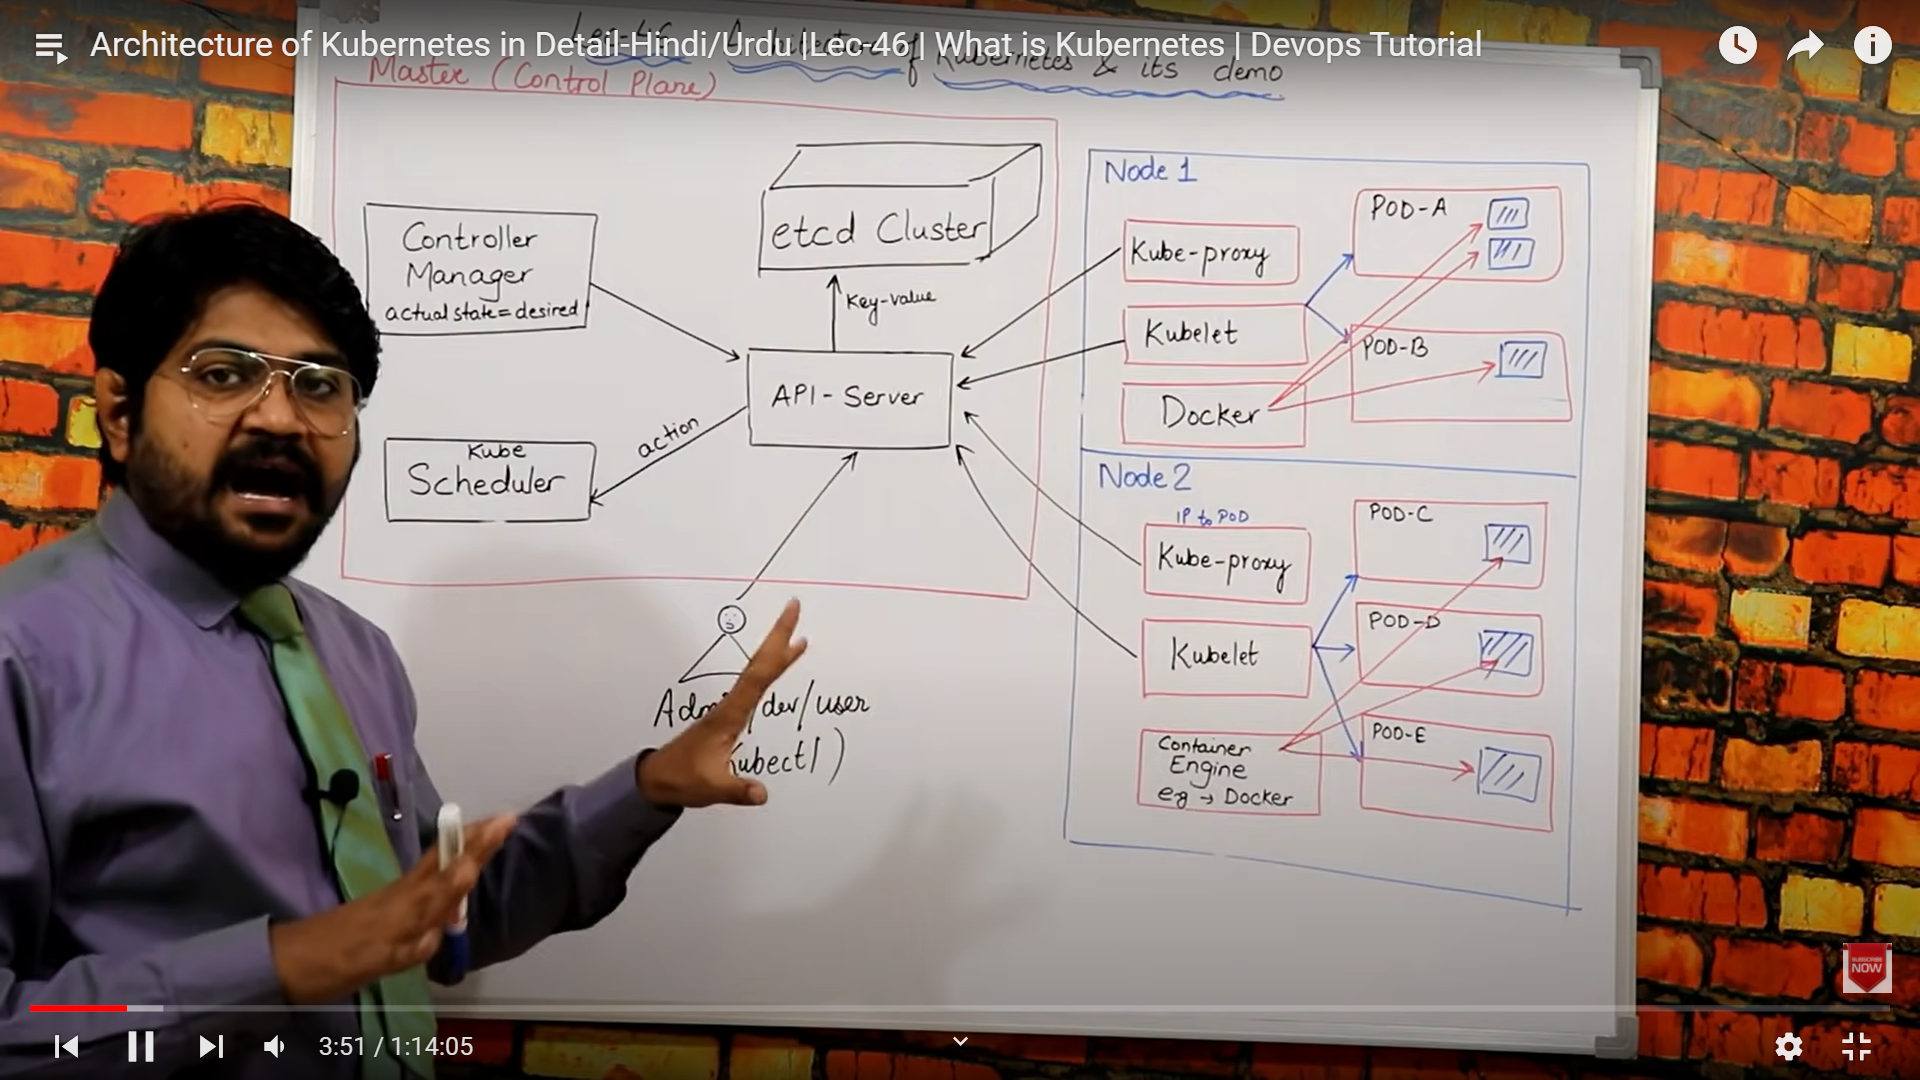 Architecture of Kubernetes in Detail-Hindi/Urdu |Lec-46| What is Kubernetes | Devops Tutorial
Lec-46 Architecture of Kubernetes & its demo
Master (Control Plane)
Controller
Manager
actual state = desired
etcd Cluster
Key-value
API - Server
action
Kube
Scheduler
/dev/user
)
Node 1
Kube-proxy
Kubelet
Docker
POD-A
POD-B
Node 2
IP to POD
Kube-proxy
Kubelet
Container
Engine
eg → Docker
POD-C
POD-D
POD-E
SUBSCRIBE
NOW
3:51 / 1:14:05